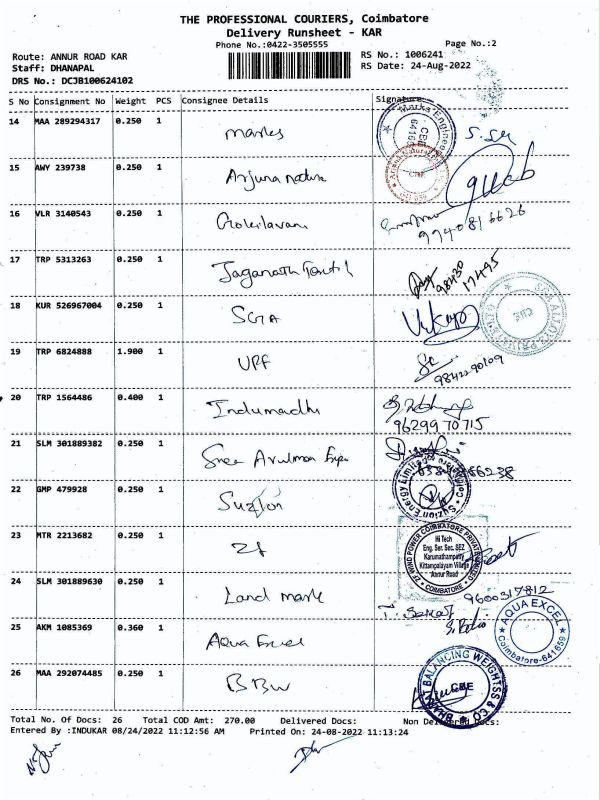 THE PROFESSIONAL COURIERS, Coimbatore
Delivery Runsheet - KAR
Phone No.:0422-3505555 Page No.:2
Route: ANNUR ROAD KAR RS No.: 1006241
Staff: DHANAPAL RS Date: 24-Aug-2022
DRS No.: DCJB100624102
S No Consignment No Weight PCS Consignee Details Signature
14 MAA 289294317 0.250 1
Marks
15 AWY 239738 0.250 1
Arjuna natura
16 VLR 3140543 0.250 1
Gokilavani
9740816626
17 TRP 5313263 0.250 1
Jaganath
98430 17495
18 KUR 526967004 0.250 1
SGA
19 TRP 6824888 1.900 1
UPF
9842290109
20 TRP 1564486 0.400 1
Indumadhi
9629970715
21 SLM 301889382 0.250 1
Sree Arulmon
22 GMP 479928 0.250 1
Suzlon
Suzlon Energy Limited
23 MTR 2213682 0.250 1
Zf
ZF WIND POWER COIMBATORE PRIVATE LIMITED
Hi Tech
Eng. Ser. Sec. SEZ
Karumathampatty
Kittampalayam Village
Annur Road
COIMBATORE
24 SLM 301889630 0.250 1
Land mark
9600317812
25 AKM 1085369 0.360 1
Aqua Excel
AQUA EXCEL
Coimbatore-641659
26 MAA 292074485 0.250 1
BBW
BHARAT BALANCING WEIGHTSS & CO
CBE
Total No. Of Docs: 26 Total COD Amt: 270.00 Delivered Docs: Non Delivered Docs:
Entered By :INDUKAR 08/24/2022 11:12:56 AM Printed On: 24-08-2022 11:13:24